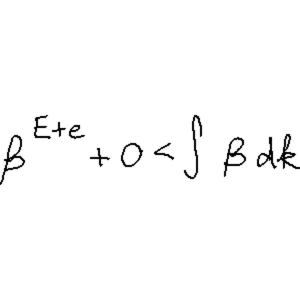 β^{E+e} + 0 < ∫ β dk